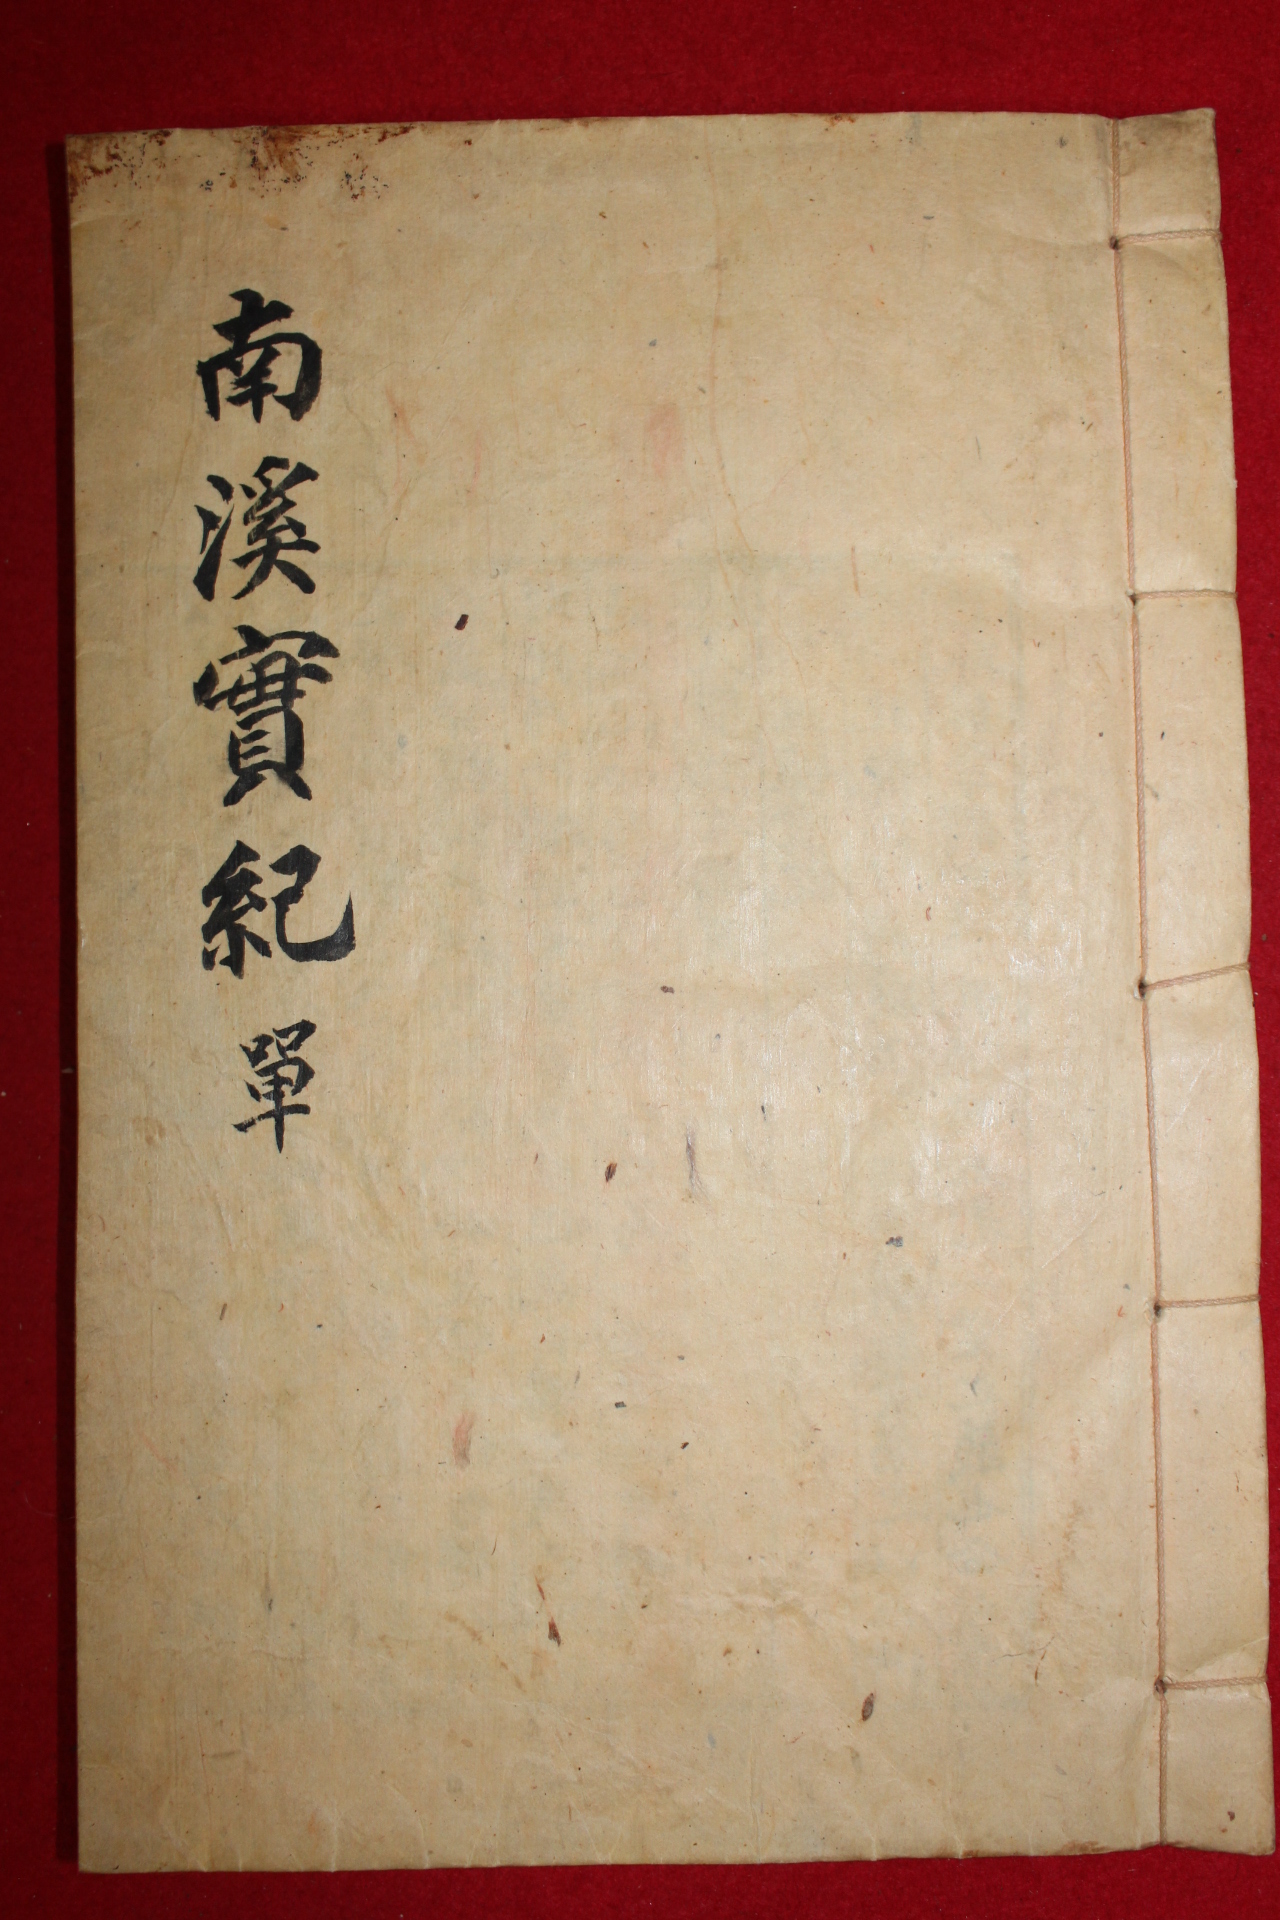 南溪實紀 單